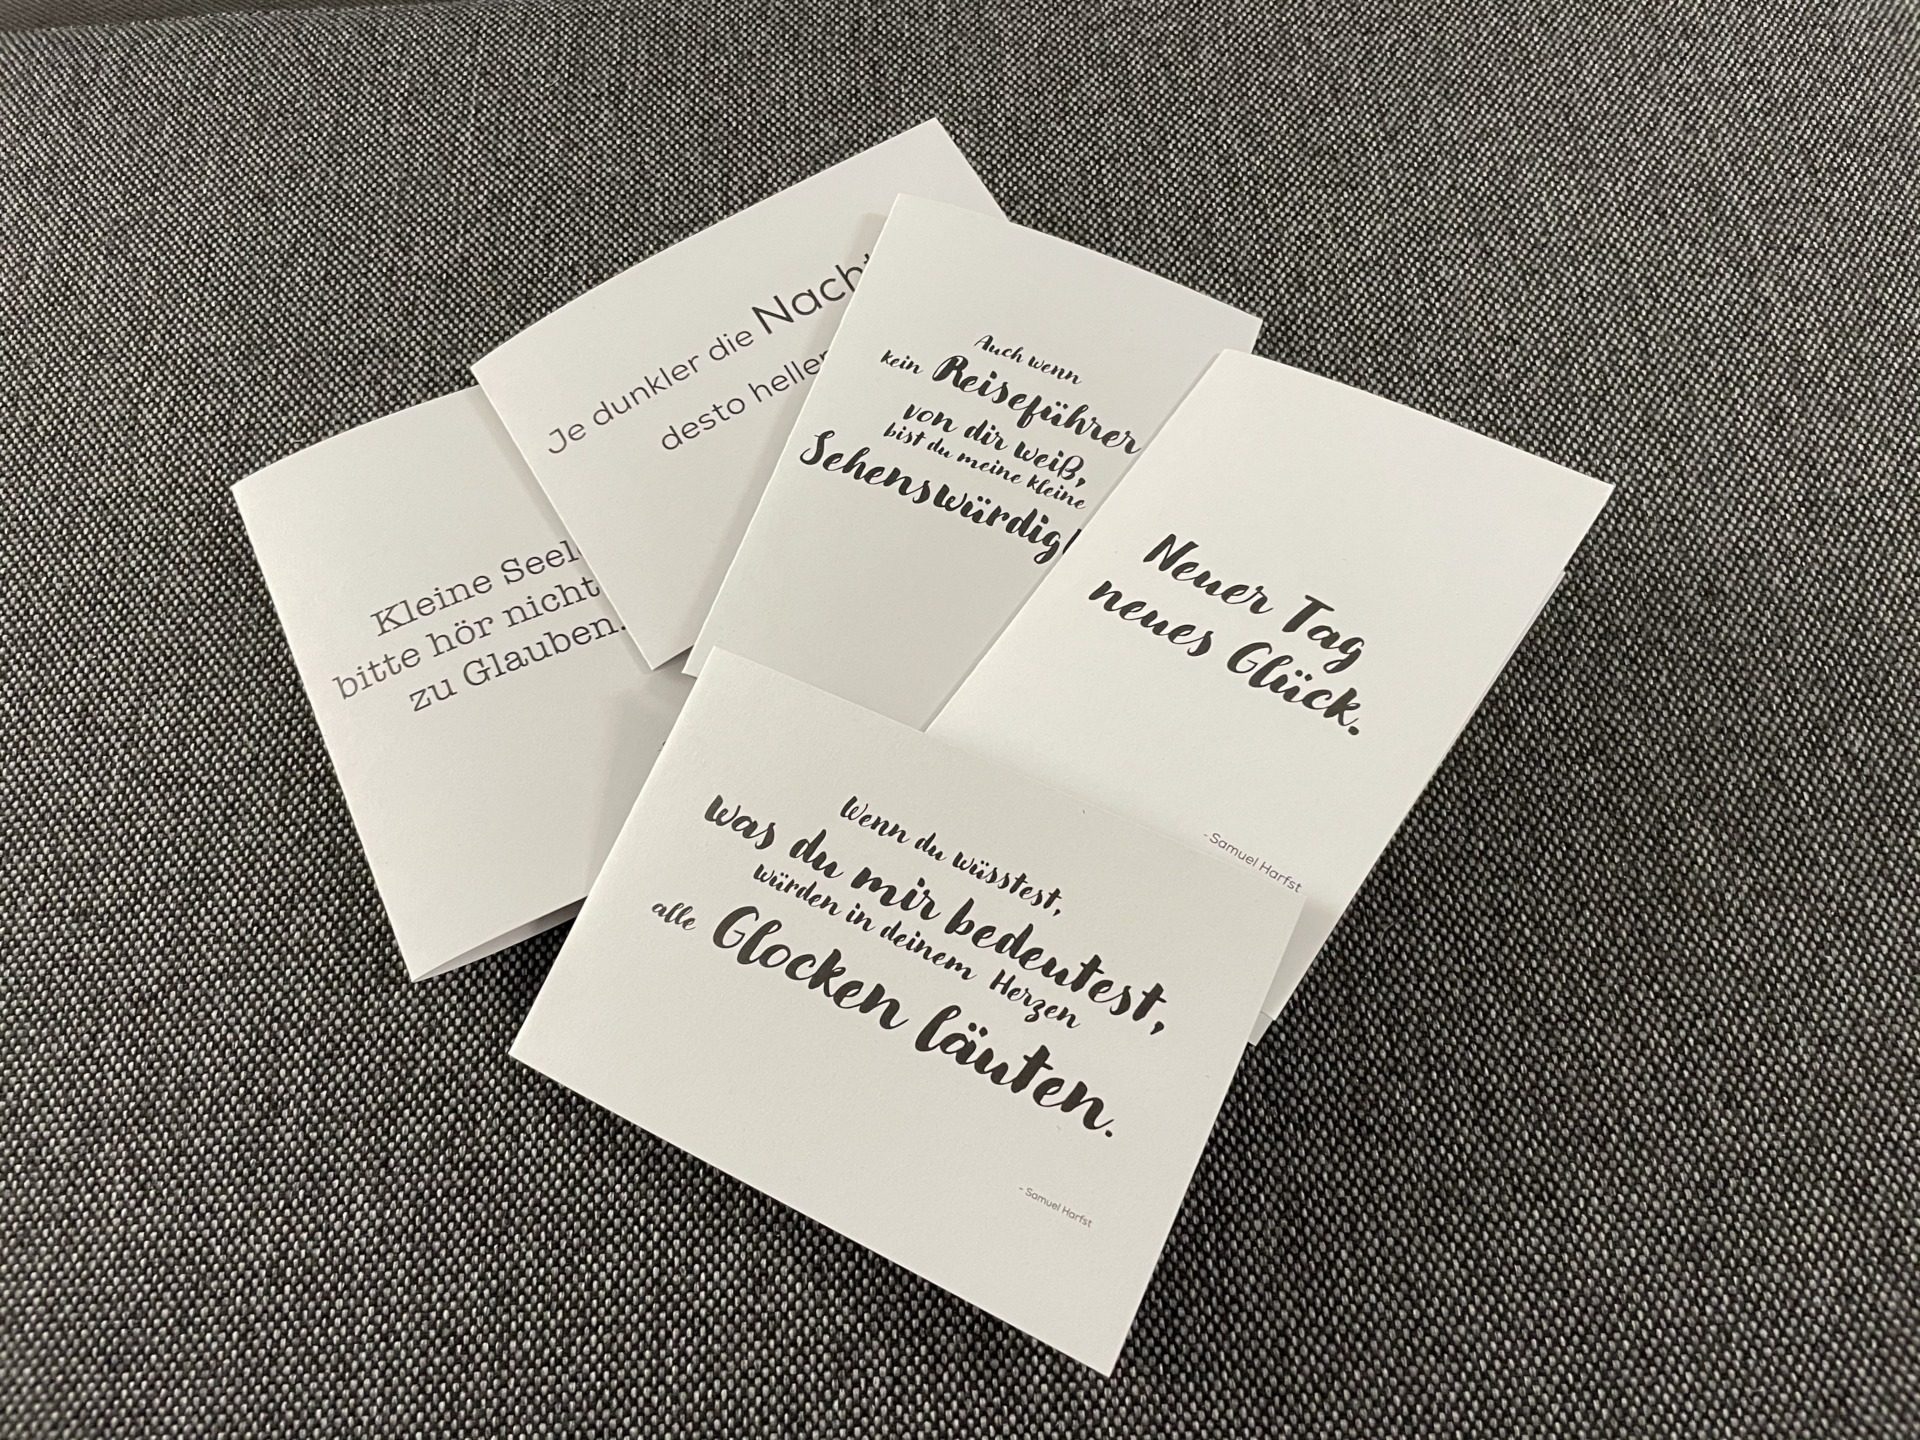 Je dunkler die Nacht
desto heller
Kleine Seele
bitte hör nicht
zu Glauben.
Auch wenn
kein Reiseführer
von dir weiß,
bist du meine kleine
Sehenswürdig
Neuer Tag
neues Glück.
- Samuel Harfst
Wenn du wüsstest,
was du mir bedeutest,
würden in deinem Herzen
alle Glocken läuten.
- Samuel Harfst